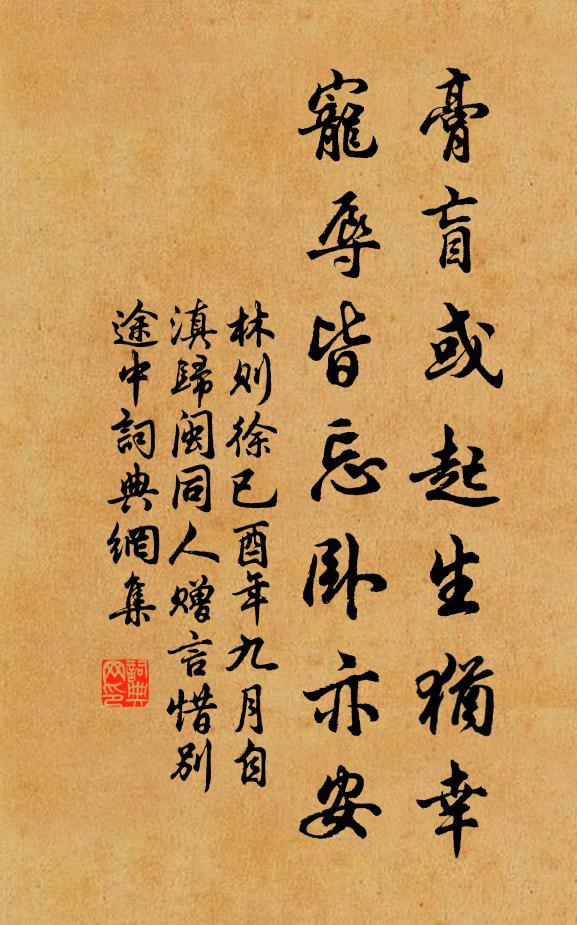 膏肓或起生猶幸
寵辱皆忘臥亦安
林則徐己酉年九月自
滇歸閩同人贈言惜別
途中詞典網集
詞典
网印